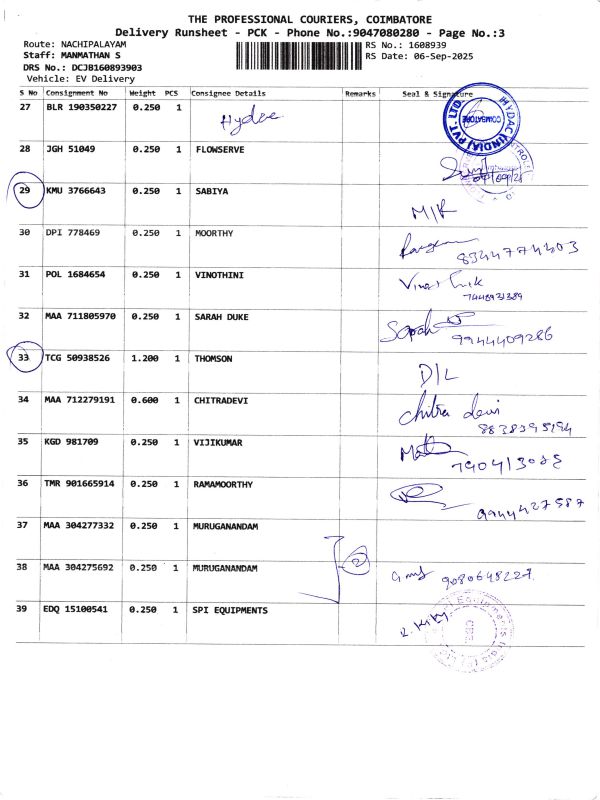 THE PROFESSIONAL COURIERS, COIMBATORE
Delivery Runsheet - PCK - Phone No.:9047080280 - Page No.:3
Route: NACHIPALAYAM RS No.: 1608939
Staff: MANMATHAN S RS Date: 06-Sep-2025
DRS No.: DCJB160893903
Vehicle: EV Delivery
S No Consignment No Weight PCS Consignee Details Remarks Seal & Signature
27 BLR 190350227 0.250 1 Hydac
HYDAC (INDIA) PVT. LTD.
COIMBATORE
28 JGH 51049 0.250 1 FLOWSERVE
29 KMU 3766643 0.250 1 SABIYA
M/K
30 DPI 778469 0.250 1 MOORTHY
8344774403
31 POL 1684654 0.250 1 VINOTHINI
32 MAA 711805970 0.250 1 SARAH DUKE
Sarah 9944409286
33 TCG 50938526 1.200 1 THOMSON
D/L
34 MAA 712279191 0.600 1 CHITRADEVI
Chitra Devi
8838395194
35 KGD 981709 0.250 1 VIJIKUMAR
36 TMR 901665914 0.250 1 RAMAMOORTHY
9944427587
37 MAA 304277332 0.250 1 MURUGANANDAM
2
38 MAA 304275692 0.250 1 MURUGANANDAM
9080648227
39 EDQ 15100541 0.250 1 SPI EQUIPMENTS
Equipments India